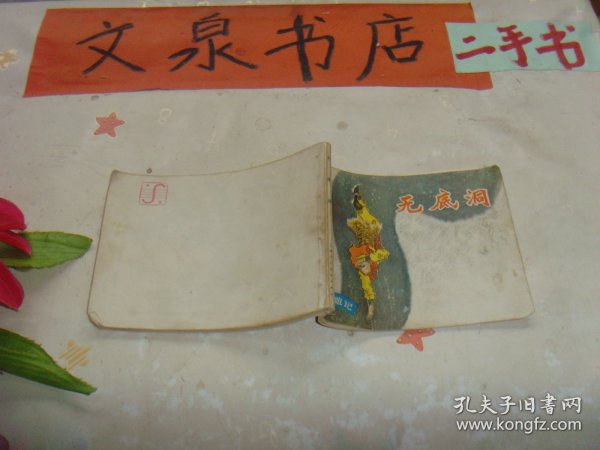 文泉书店
二手书
无底洞
游记
孔夫子旧书网
www.kongfz.com